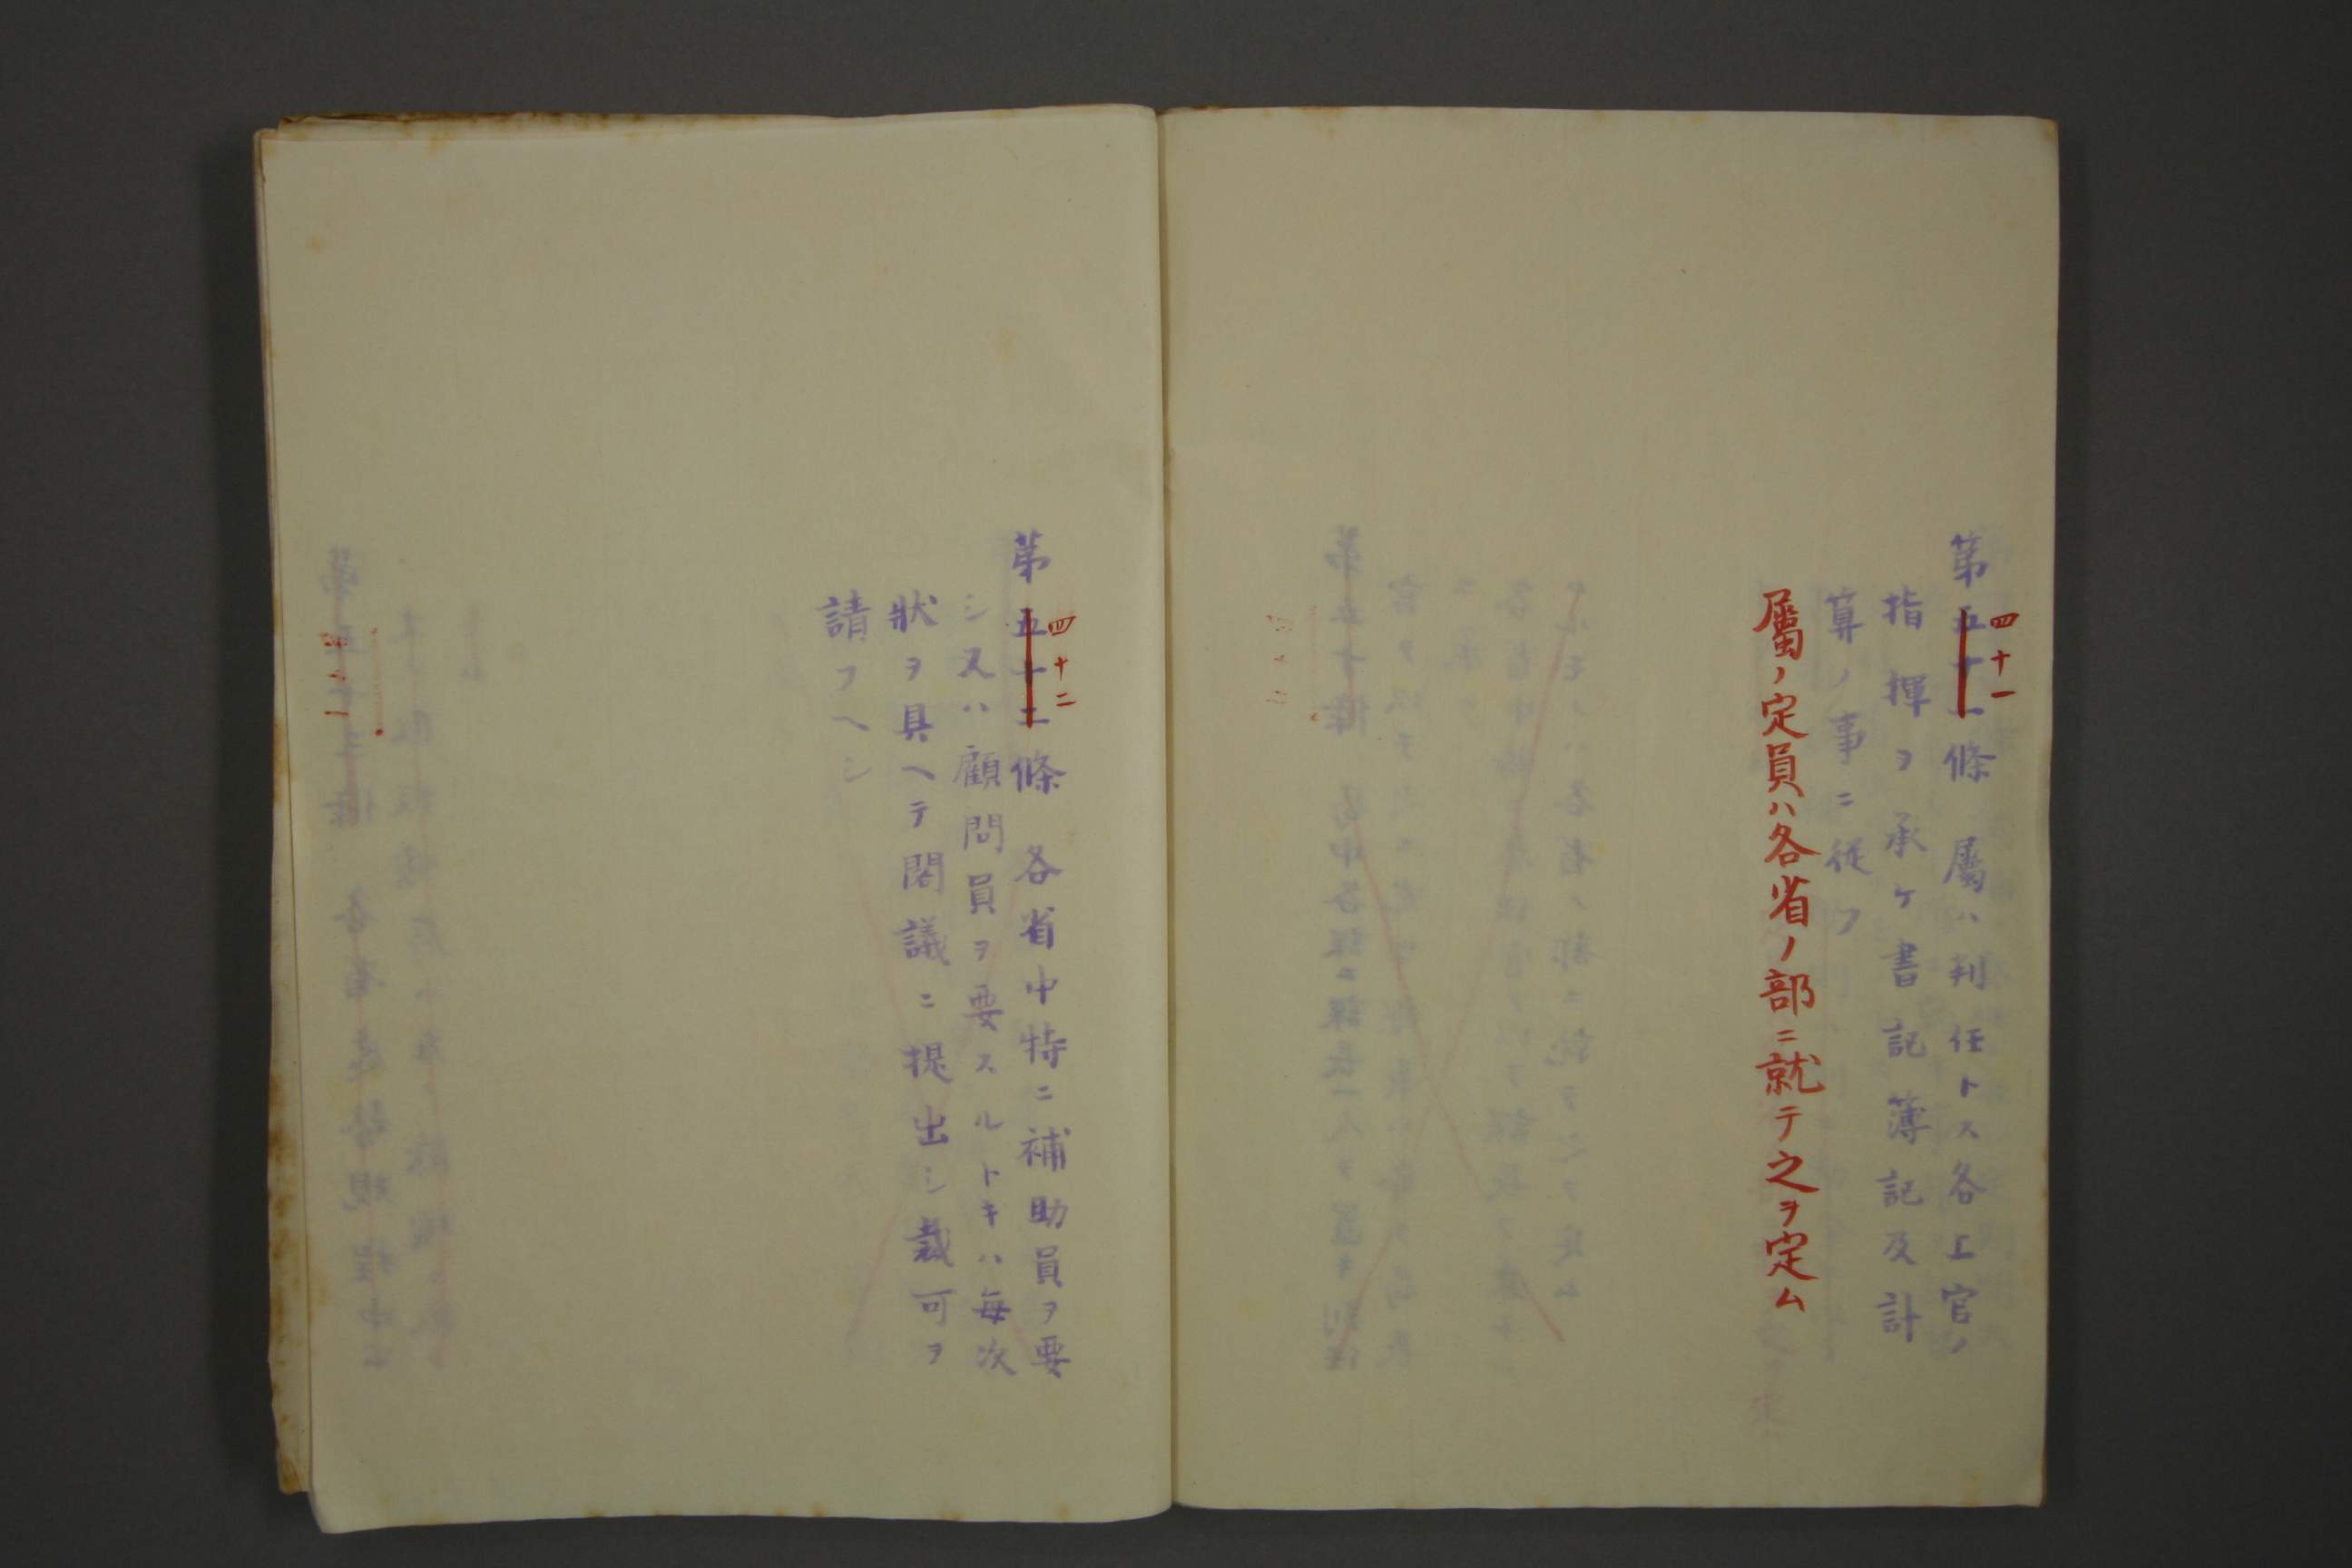 四十一
第五十一條 屬ハ判任トス各上官ノ
指揮ヲ承ケ書記簿記及計
算ノ事ニ従フ
屬ノ定員ハ各省ノ部ニ就テ之ヲ定ム
四十二
第五十二條 各省中特ニ補助員ヲ要
シ又ハ顧問員ヲ要スルトキハ毎次
狀ヲ具ヘテ閣議ニ提出シ裁可ヲ
請フヘシ